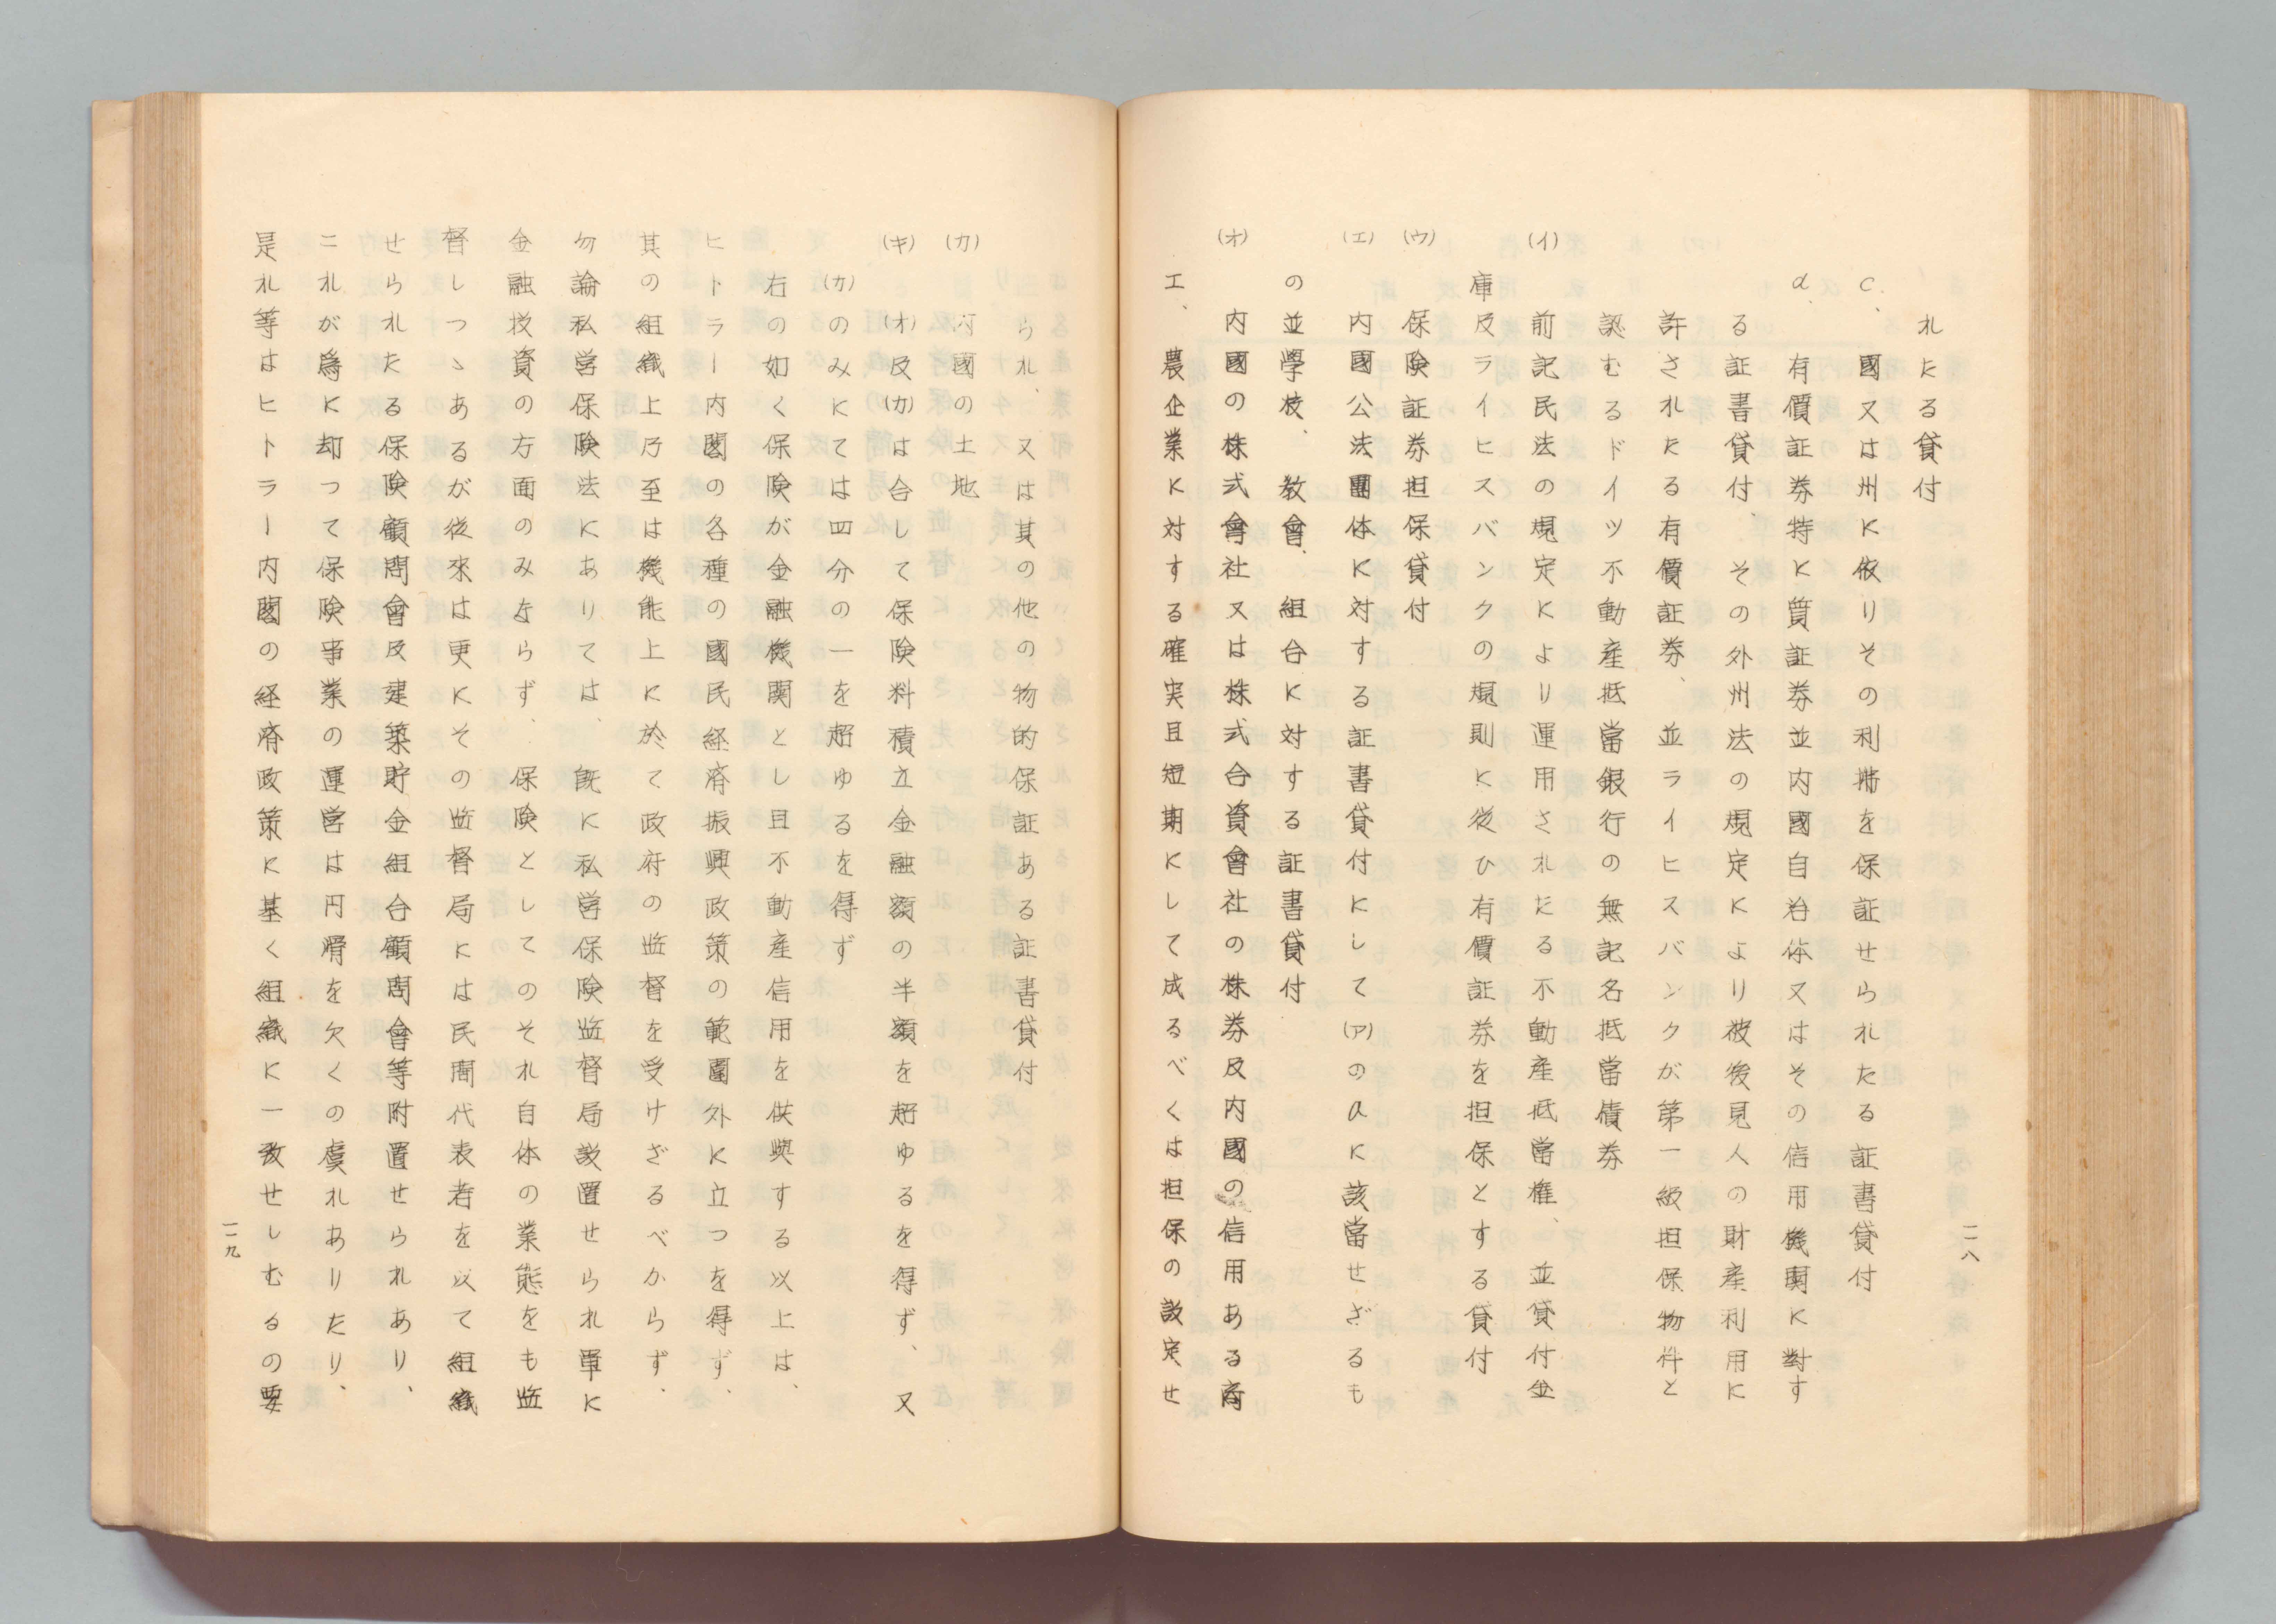 れたる貸付
c、國又は州に依りその利拂を保証せられたる証書貸付
d、有價証券特に質証券並内國自治体又はその信用機関に対す
る証書貸付、その外州法の規定により被後見人の財産利用に
許されたる有價証券、並ライヒスバンクが第一級担保物件と
認むるドイツ不動産抵當銀行の無記名抵當債券
(イ)前記民法の規定により運用されたる不動産抵當権、並貸付金
庫及ライヒスバンクの規則に従ひ有價証券を担保とする貸付
(ウ)保険証券担保貸付
(エ)内國公法團体に対する証書貸付にして(ア)のaに該當せざるも
の並學校、教會、組合に対する証書貸付
(オ)内國の株式會社又は株式合資會社の株券及内國の信用ある商
工、農企業に対する確実且短期にして成るべくは担保の設定せ
一一八
られ、又は其の他の物的保証ある証書貸付
(カ)内國の土地
(キ)(オ)及(カ)は合して保険料積立金融額の半額を超ゆるを得ず、又
(カ)のみにては四分の一を超ゆるを得ず
右の如く保険が金融機関とし且不動産信用を供與する以上は、
ヒトラー内閣の各種の國民経済振興政策の範圍外に立つを得ず、
其の組織上乃至は機能上に於て政府の監督を受けざるべからず、
勿論私営保険法にありては、既に私営保険監督局設置せられ單に
金融投資の方面のみならず、保険としてのそれ自体の業態をも監
督しつゝあるが従來は更にその監督局には民間代表者を以て組織
せられたる保険顧問會及建築貯金組合顧問會等附置せられあり、
これが爲に却つて保険事業の運営は円滑を欠くの虞れありたり、
是れ等はヒトラー内閣の経済政策に基く組織に一致せしむるの要
一一九